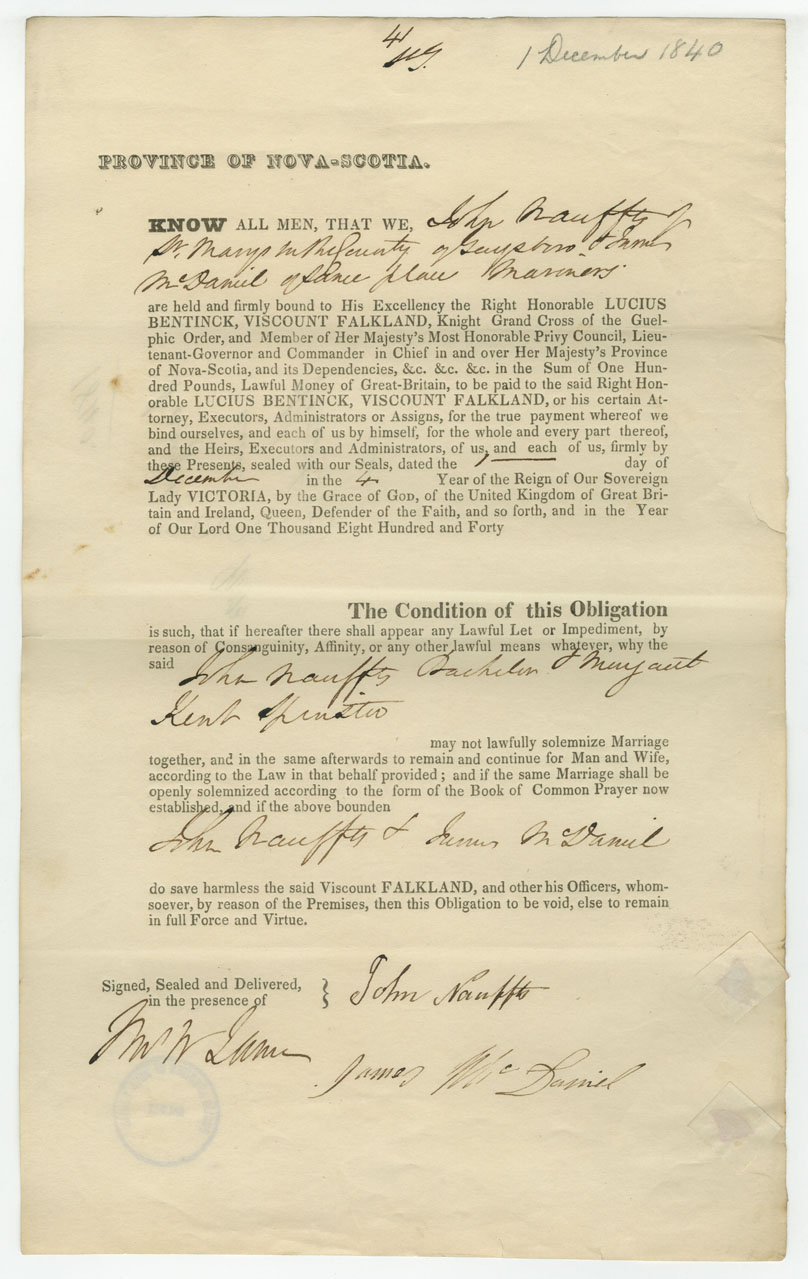 4
1 December 1840
PROVINCE OF NOVA-SCOTIA.
KNOW ALL MEN, THAT WE, John Nauffts of
St. Marys in the County of Guysboro & James
McDaniel of same place Mariners
are held and firmly bound to His Excellency the Right Honorable LUCIUS
BENTINCK, VISCOUNT FALKLAND, Knight Grand Cross of the Guel-
phic Order, and Member of Her Majesty's Most Honorable Privy Council, Lieu-
tenant-Governor and Commander in Chief in and over Her Majesty's Province
of Nova-Scotia, and its Dependencies, &c. &c. &c. in the Sum of One Hun-
dred Pounds, Lawful Money of Great-Britain, to be paid to the said Right Hon-
orable LUCIUS BENTINCK, VISCOUNT FALKLAND, or his certain At-
torney, Executors, Administrators or Assigns, for the true payment whereof we
bind ourselves, and each of us by himself, for the whole and every part thereof,
and the Heirs, Executors and Administrators, of us, and each of us, firmly by
these Presents, sealed with our Seals, dated the 1 day of
December in the 4 Year of the Reign of Our Sovereign
Lady VICTORIA, by the Grace of GOD, of the United Kingdom of Great Bri-
tain and Ireland, Queen, Defender of the Faith, and so forth, and in the Year
of Our Lord One Thousand Eight Hundred and Forty
The Condition of this Obligation
is such, that if hereafter there shall appear any Lawful Let or Impediment, by
reason of Consanguinity, Affinity, or any other lawful means whatever, why the
said John Nauffts Bachelor & Margaret
Kent Spinster
may not lawfully solemnize Marriage
together, and in the same afterwards to remain and continue for Man and Wife,
according to the Law in that behalf provided; and if the same Marriage shall be
openly solemnized according to the form of the Book of Common Prayer now
established, and if the above bounden
John Nauffts & James McDaniel
do save harmless the said Viscount FALKLAND, and other his Officers, whom-
soever, by reason of the Premises, then this Obligation to be void, else to remain
in full Force and Virtue.
Signed, Sealed and Delivered,
in the presence of
John Nauffts
James McDaniel